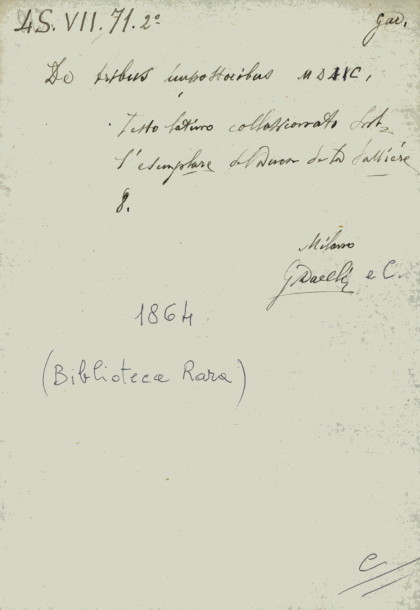 4S. VII. 71. 2º
gad.
De tribus impostoribus MDIIC,
Testo latino collazionato sul
l'esemplare del Duca de la Vallière
8.
Milano
G Daelli e C.
1864
(Biblioteca Rara)
C